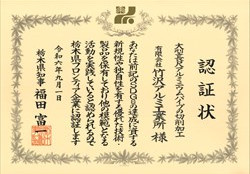 認証状
大口径長尺アルミニウムパイプの切削加工
有限会社 竹沢アルミ工業所 様
あなたは前記のSDGsの達成に資する
新規性や独自性を有する優れた技術
製品を保有しており他の模範となる
活動を実践していると認められるので
栃木県フロンティア企業に認証します
令和六年九月一日
栃木県知事 福田富一